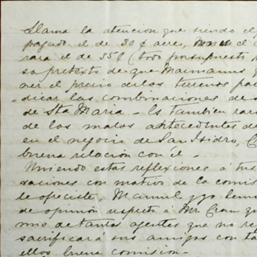 Llama la atencion que siendo el p
pagado el de 30 ¢ acre,
rara el de 35 ¢ (todo presupuesto
so pretesto de que Macmanus y
rer el precio de los terrenos pa
dicar las combinaciones de
de Sta Maria - Es tambien rar
de los malos antecedentes d
en el negocio de San Isidro, C
buena relación con él
Uniendo estas reflexiones á tus
raciones con motivo de la comis
le ofreciste, Mcamul y yo hemo
de opinión respecto á Mr Cran que
uno de tantos agentes que no re
sacrificará sus amigos con ta
ellos buena comision.